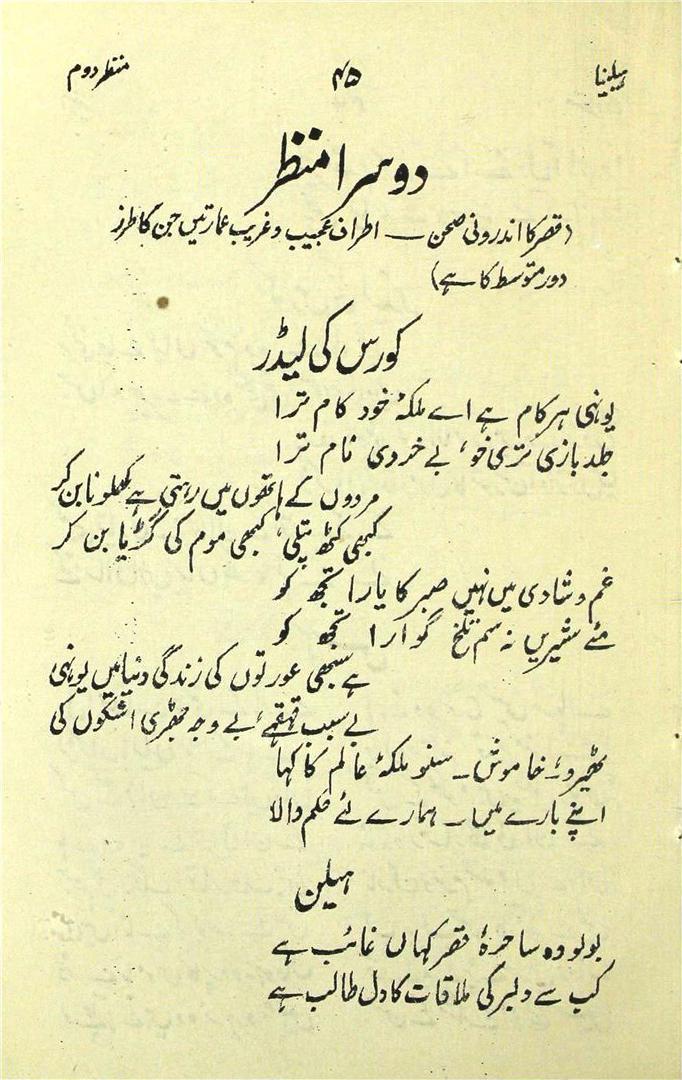 ہیلینا ۴۵ منظر دوم
دوسرا منظر
(قصر کا اندرونی صحن — اطراف عجیب و غریب عمارتیں جن کا طرز
دور متوسط کا ہے)
کورس کی لیڈر
یونہی ہر کام ہے اے ملکۂ خود کام ترا
جلد بازی تری خو، بے خردی نام ترا
مردوں کے ہاتھوں میں رہتی ہے کھلونا بن کر
کبھی کٹھ پتلی، کبھی موم کی گڑیا بن کر
غم و شادی میں نہیں صبر کا یارا تجھ کو
مئے شیریں نہ سم تلخ گوارا تجھ کو
ہے سبھی عورتوں کی زندگی دنیا میں یونہی
بے سبب قہقہے، بے وجہ جھڑی اشکوں کی
ٹھیرو۔ خاموش۔ سنو ملکۂ عالم کا کہا
اپنے بارے میں۔ ہمارے لئے حکم والا
ہیلن
بولو وہ ساحرۂ قصر کہاں غائب ہے
کب سے دلبر کی ملاقات کا دل طالب ہے